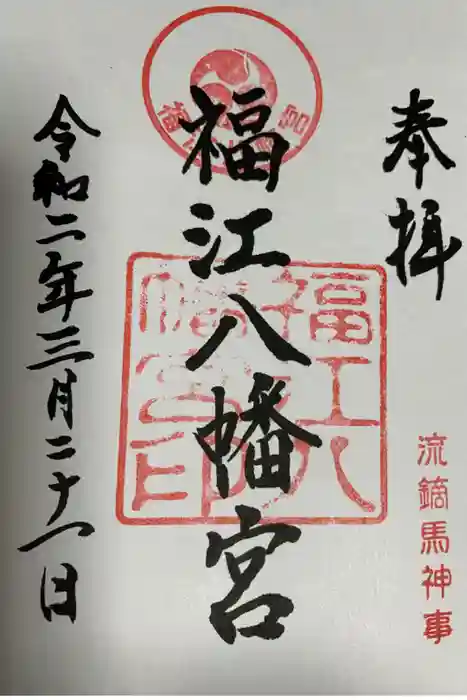 奉拝
流鏑馬神事
福江八幡宮
福江八幡宮
福江八幡宮印
令和二年三月二十一日